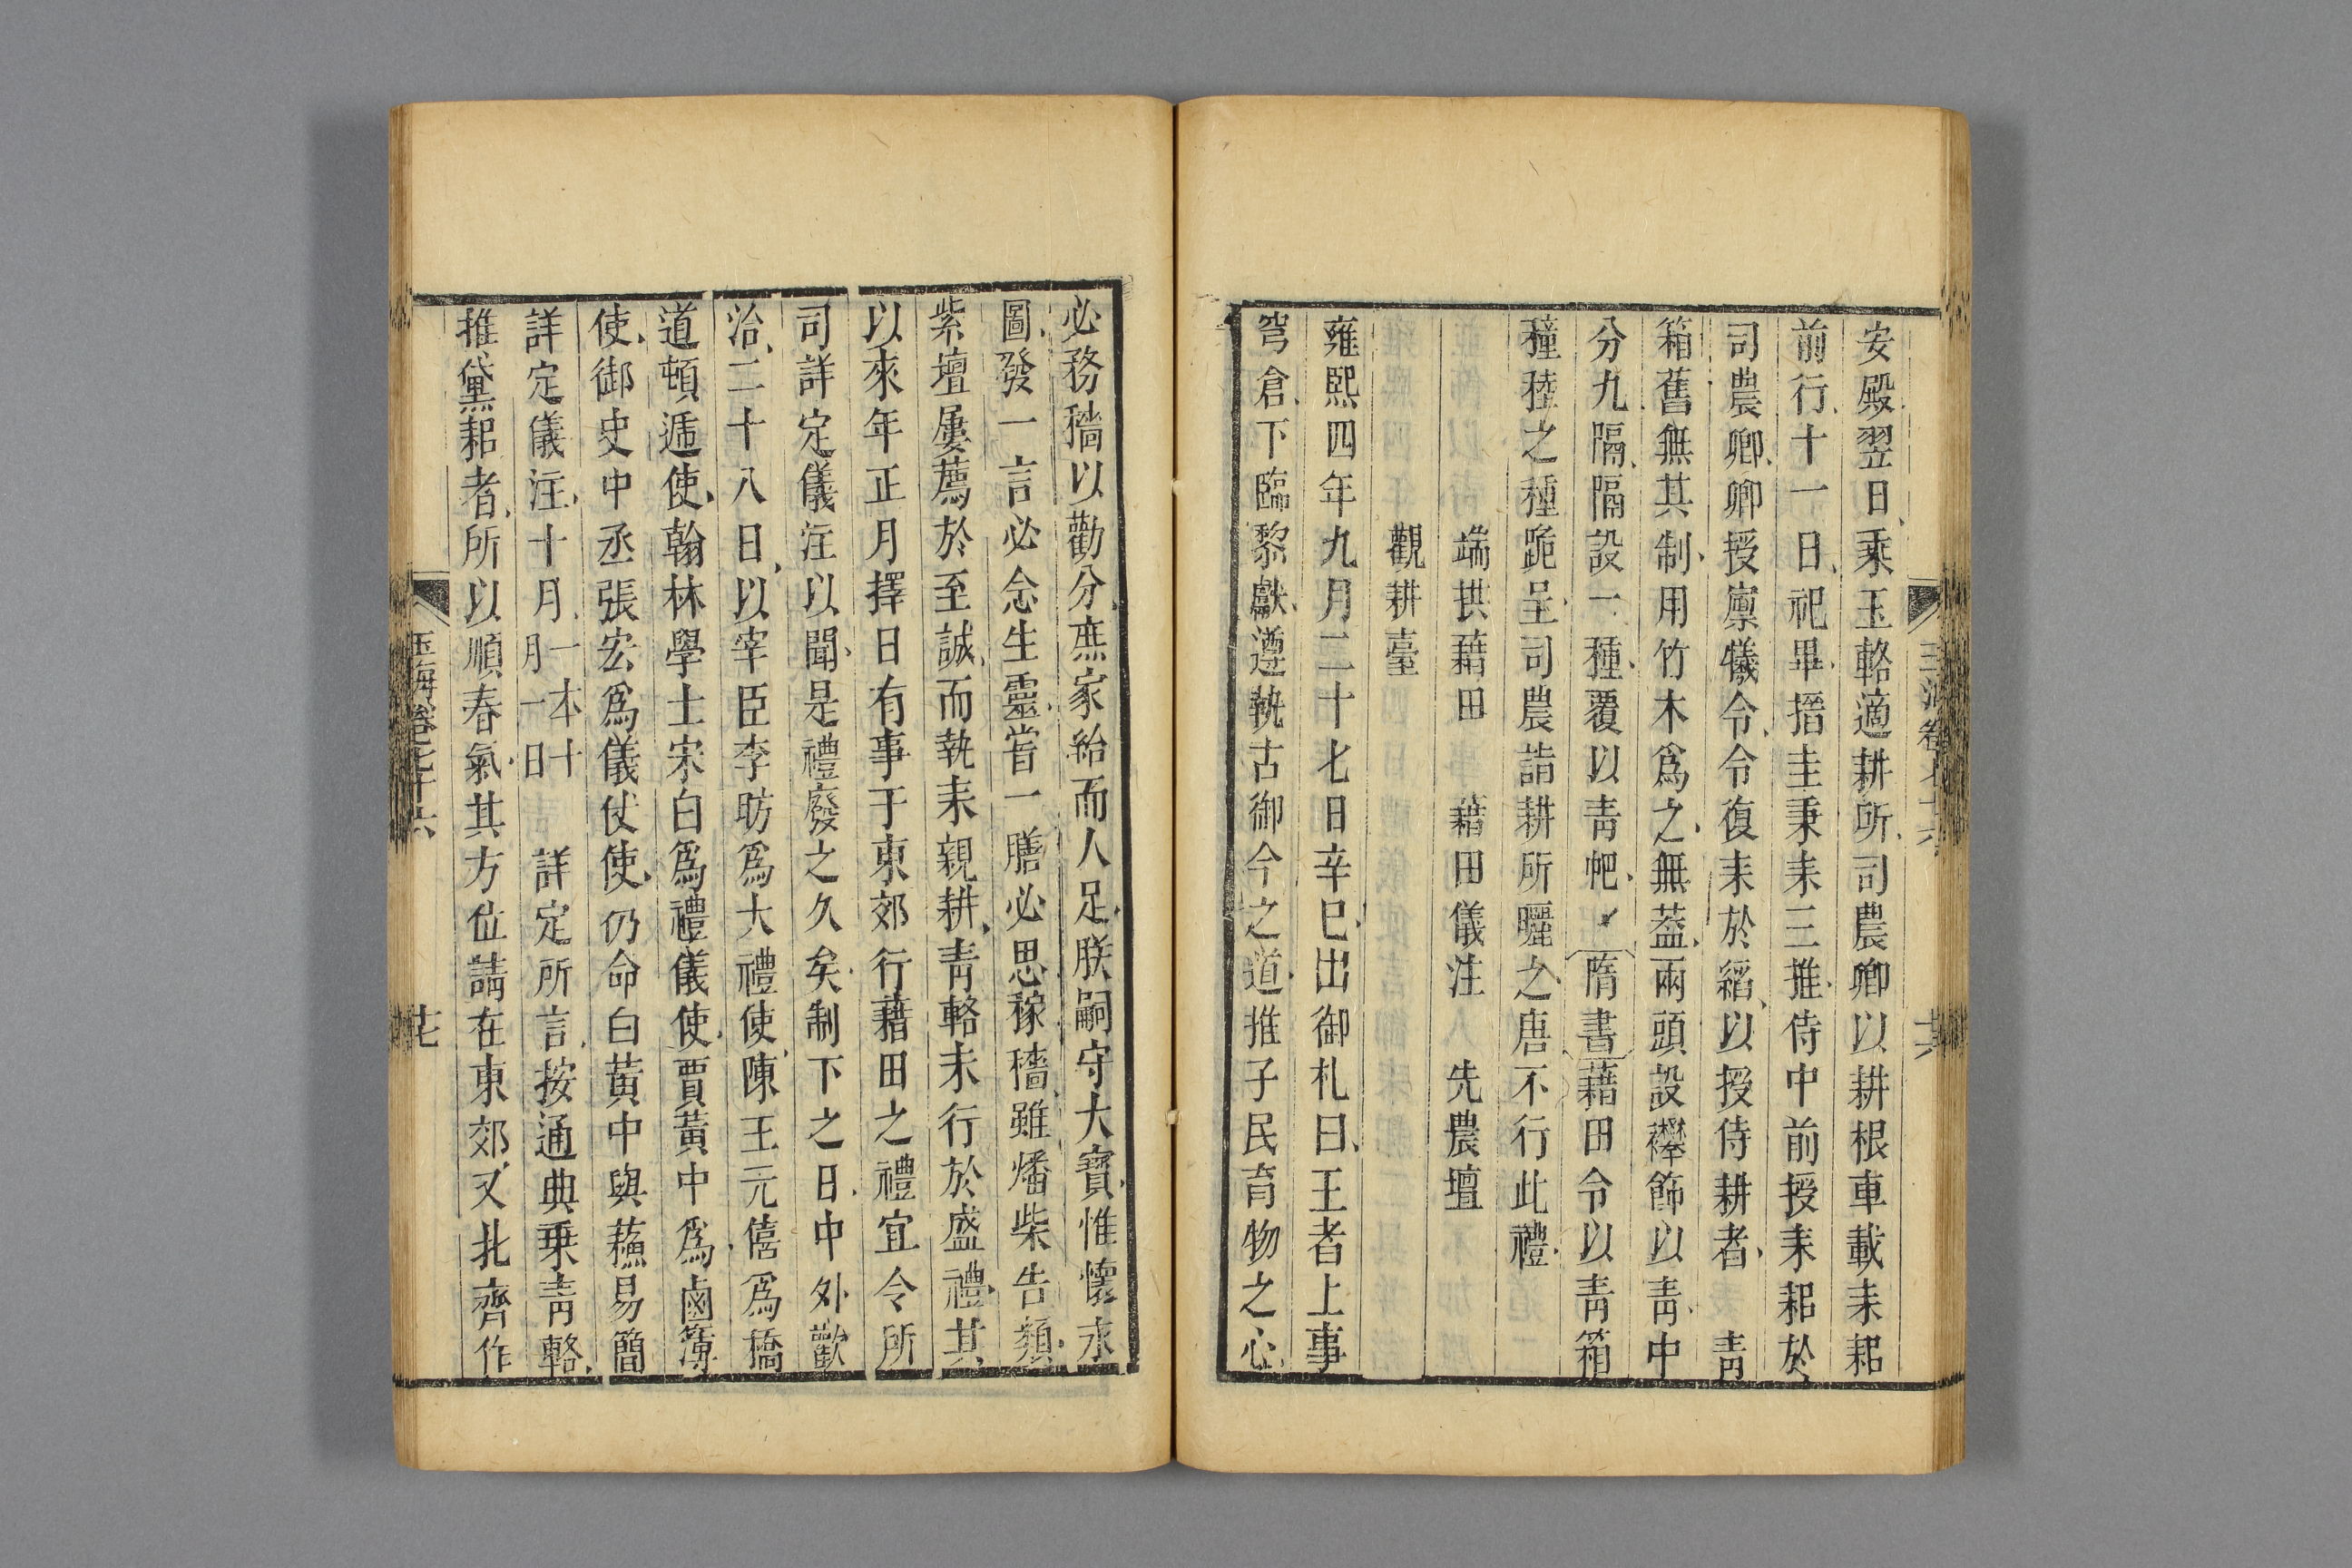 安殿翌日乘玉輅適耕所司農卿以耕根車載耒耜
前行十一日祀畢搢圭秉耒三推侍中前授耒耜於
司農卿卿授廩犧令令復耒於縚以授侍耕者　青
箱舊無其制用竹木爲之無葢兩頭設襻飾以青中
分九隔隔設一種覆以青帊隋書藉田令以青箱
穜稑之種跪呈司農詣耕所灑之唐不行此禮
端拱藉田　藉田儀注　先農壇
觀耕臺
雍熙四年九月二十七日辛巳出御札曰王者上事
穹倉下臨黎獻遵執古御今之道推子民育物之心
必務穡以勸分庶家給而人足朕嗣守大寶惟懷永
圖發一言必念生靈嘗一膳必思稼穡雖燔柴告類
紫壇屢薦於至誠而執耒親耕青輅未行於盛禮其
以來年正月擇日有事于東郊行藉田之禮宜令所
司詳定儀注以聞是禮廢之久矣制下之日中外歡
洽二十八日以宰臣李昉爲大禮使陳王元僖爲橋
道頓遞使翰林學士宋白爲禮儀使賈黃中爲鹵簿
使御史中丞張宏爲儀仗使仍命白黃中與蘇易簡
詳定儀注十月一本十月一日　詳定所言按通典乗青輅
推黛耜者所以順春氣其方位請在東郊又北齊作
玉海卷七十六